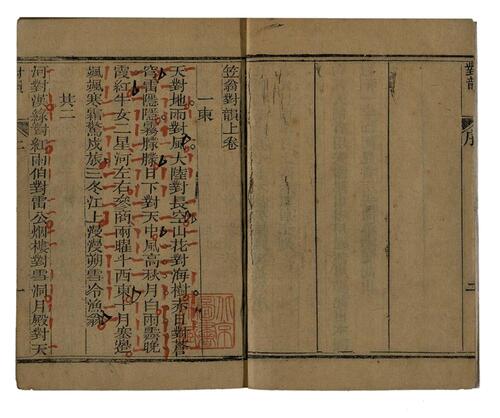 對韻
序
二
笠翁對韻上卷
一東
天對地雨對風大陸對長空山花對海樹赤日對蒼
穹雷隱隱霧朦朦日下對天中風高秋月白雨霽晚
霞紅牛女二星河左右參商兩曜斗西東十月塞邊
颯颯寒霜驚戍旅三冬江上漫漫朔雪冷漁翁
其二
河對漢綠對紅雨伯對雷公烟樓對雪洞月殿對天
對韻
一